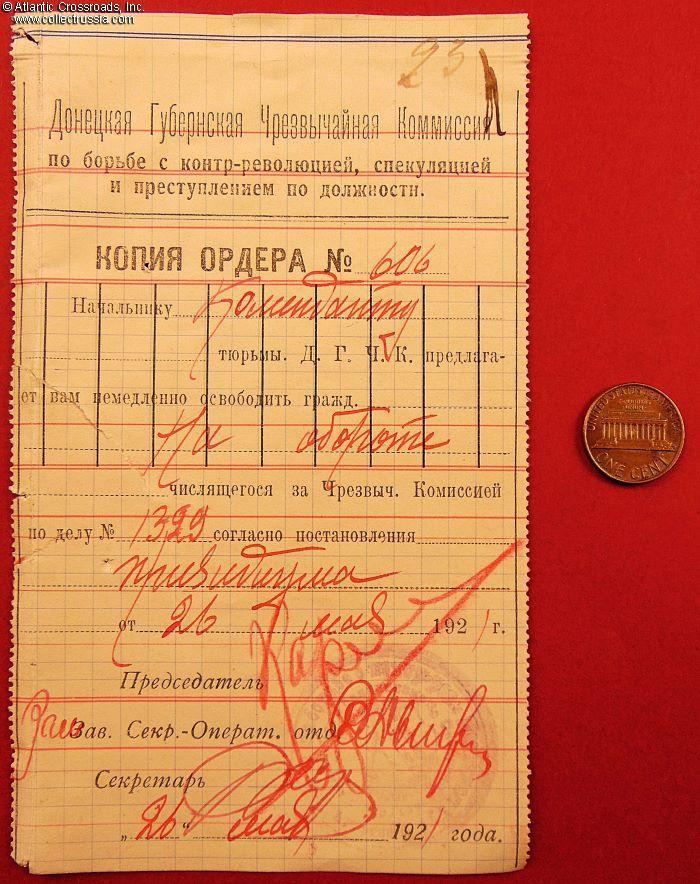 © Atlantic Crossroads, Inc.
www.collectrussia.com
23
Донецкая Губернская Чрезвычайная Коммиссия
по борьбе с контр-революцией, спекуляцией
и преступлением по должности.
КОПИЯ ОРДЕРА № 606
Начальнику Коменданту
тюрьмы. Д. Г. Ч. К. предлага-
ет вам немедленно освободить гражд.
На обороте
числящегося за Чрезвыч. Комиссией
по делу № 1329 согласно постановления
от 26 мая 1921 г.
Председатель
Зам Зав. Секр.-Операт. отд
Секретарь
„26“ мая 1921 года.
UNITED STATES OF AMERICA
ONE CENT